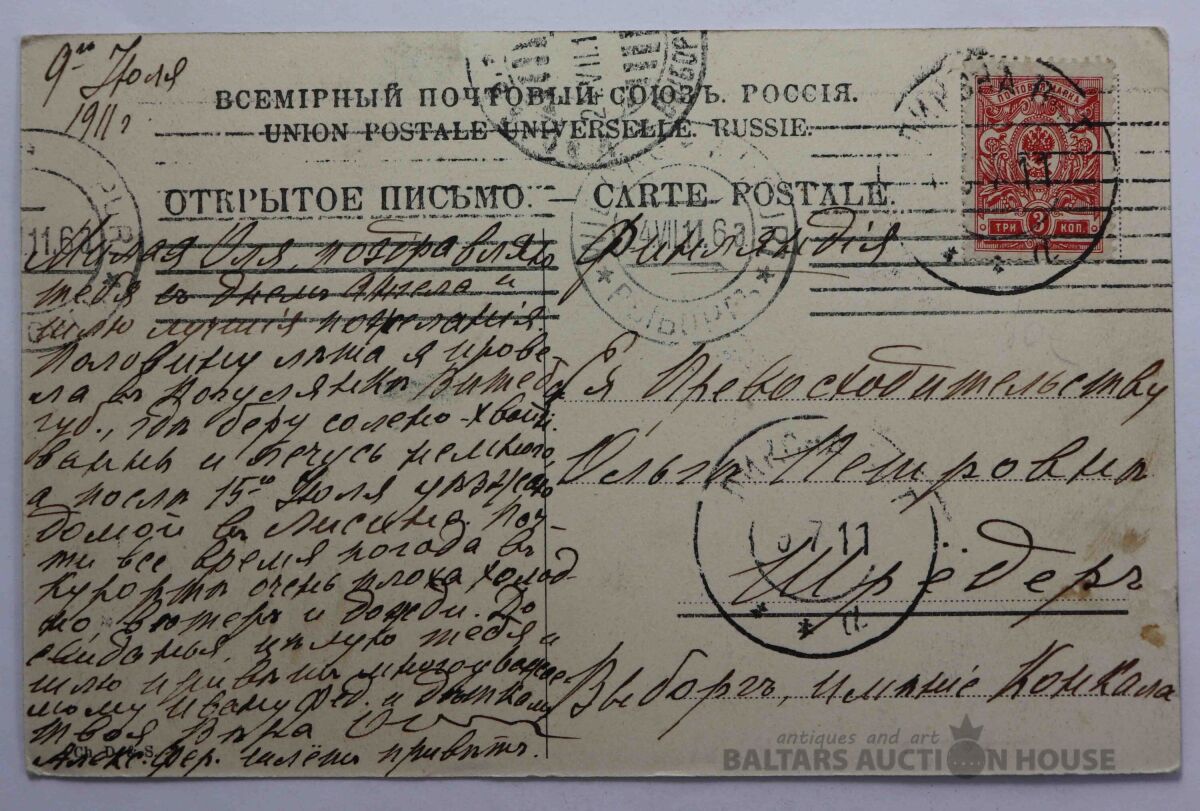 9го Июля
1911 г
ВСЕМІРНЫЙ ПОЧТОВЫЙ СОЮЗЪ. РОССІЯ.
UNION POSTALE UNIVERSELLE. RUSSIE.
ОТКРЫТОЕ ПИСЬМО. — CARTE POSTALE.
Милая Оля, поздравляю
тебя съ днемъ Ангела и
шлю лучшія пожеланія.
Половину лѣта я прове-
ла въ Погулянкѣ Витеб.
губ., гдѣ беру солено-хвойн.
ванны и лечусь немного,
а послѣ 15го Июля уѣзжаю
домой въ Лисино. Поч-
ти все время погода въ
курортѣ очень плоха, холод-
но вѣтеръ и дожди. До
свиданья, цѣлую тебя и
шлю привѣты многоуважае-
мому Ивану Фед. и дѣткамъ
твоя Вѣка
Алекс. Фер. шлетъ привѣтъ.
Финляндія
Ея Превосходительству
Ольгѣ Петровнѣ
Шрёдеръ
Выборгъ, имѣніе Конкала
ПОЧТОВАЯ МАРКА
3
ТРИ КОП.
4 VII 11. 6
11. 6
7 11
11
Ch. D. V. S.
antiques and art
BALTARS AUCTION HOUSE